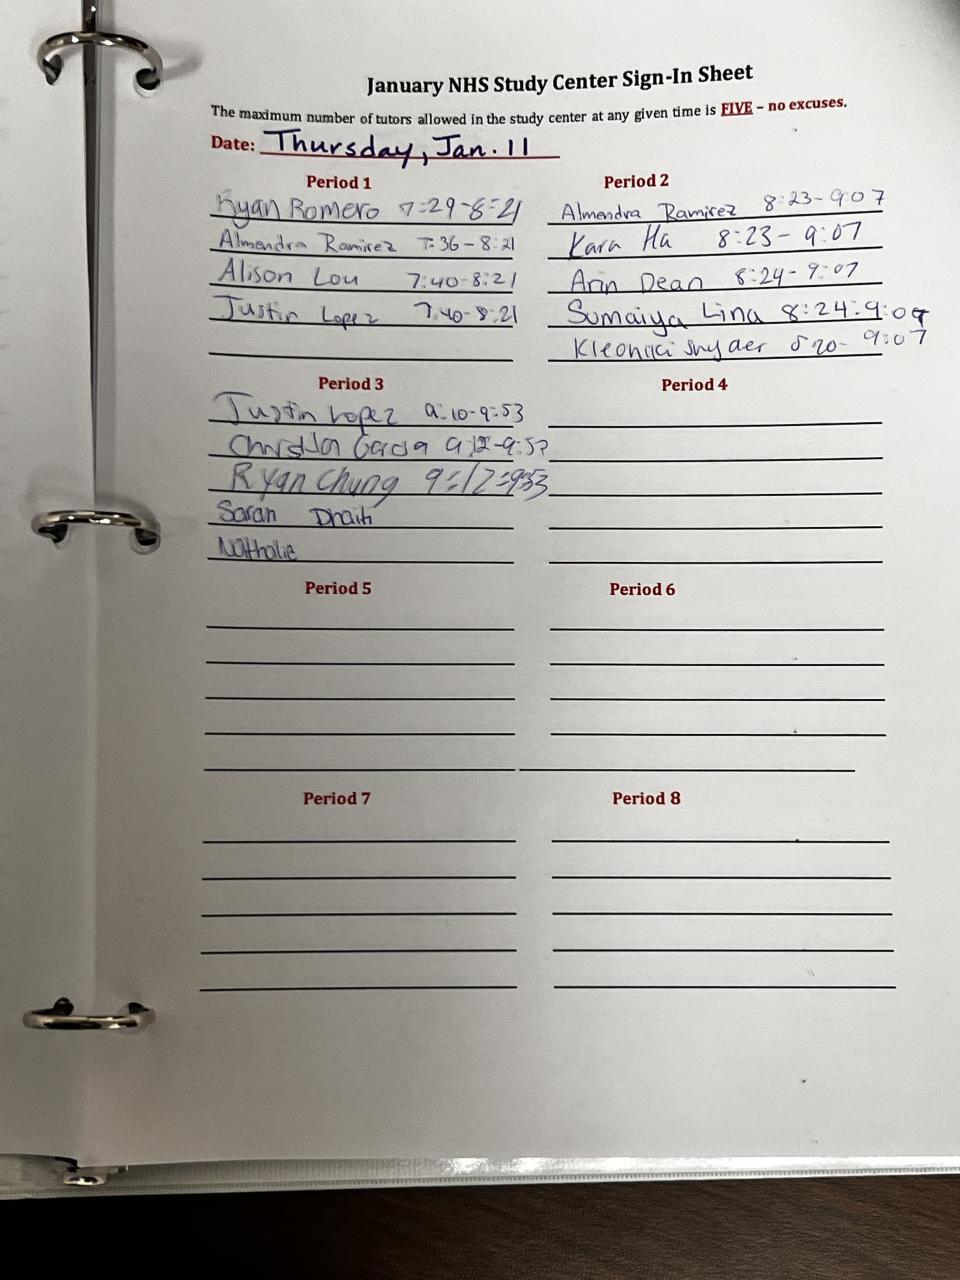 January NHS Study Center Sign-In Sheet
The maximum number of tutors allowed in the study center at any given time is FIVE – no excuses.
Date: Thursday, Jan. 11
Period 1
Ryan Romero 7:29-8:21
Almendra Ramirez 7:36-8:21
Alison Lou 7:40-8:21
Justin Lopez 7:40-8:21
Period 2
Almendra Ramirez 8:23-9:07
Kara Ha 8:23-9:07
Arin Dean 8:24-9:07
Sumaiya Lina 8:24-9:07
Snyder 9:07
Period 3
Justin Lopez 9:10-9:53
Garcia 9:12-9:53
Ryan Chung 9:12-9:53
Saran
Nathalie
Period 4
Period 5
Period 6
Period 7
Period 8